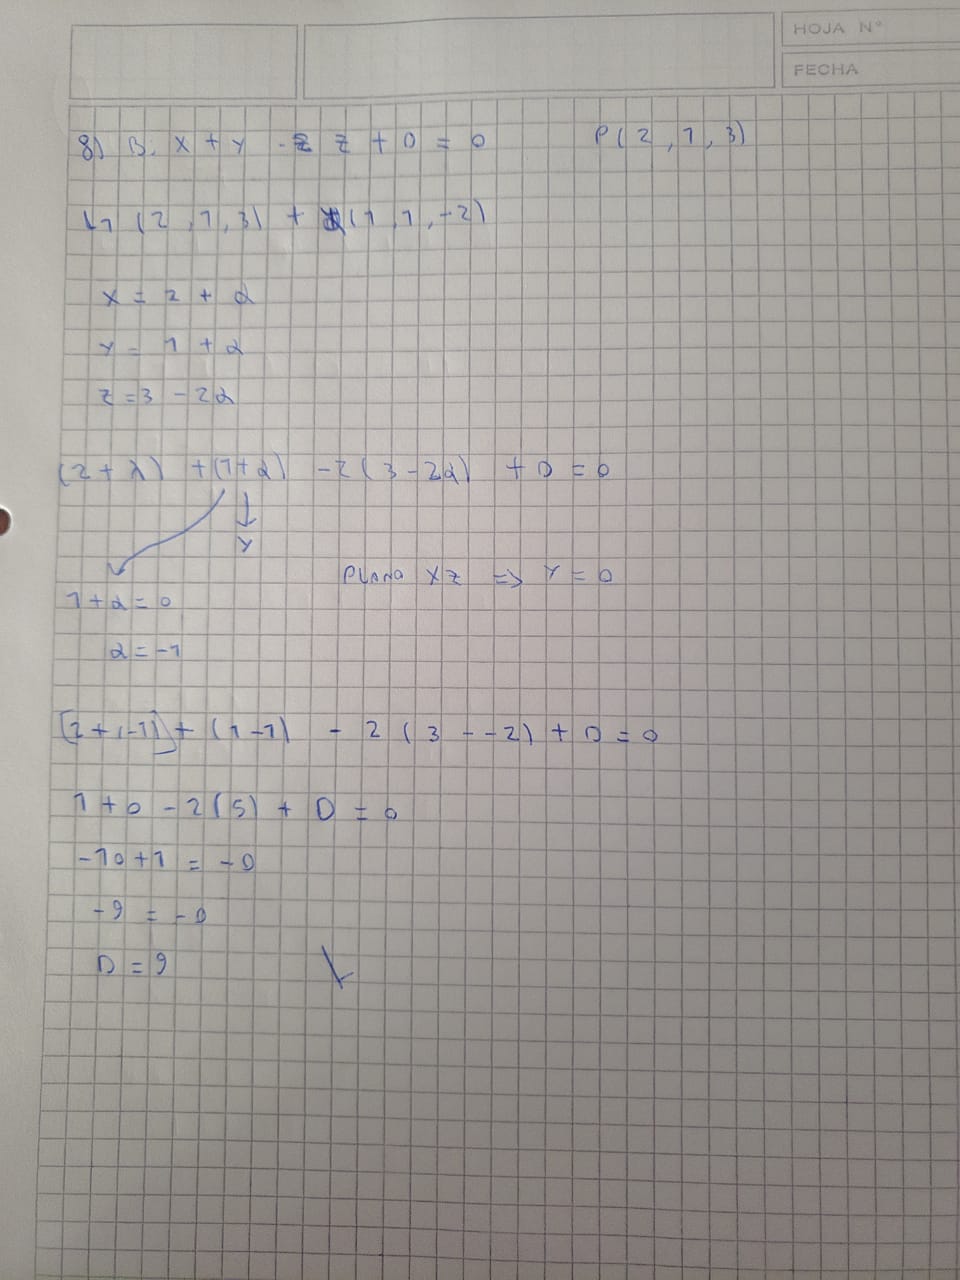 HOJA N°
FECHA
8) B. x + y - 2 z + D = 0 P(2, 1, 3)
L1 (2, 1, 3) + α(1, 1, -2)
x = 2 + α
y = 1 + α
z = 3 - 2α
(2 + λ) + (1 + α) - 2(3 - 2α) + D = 0
y
PLANO XZ => Y = 0
1 + α = 0
α = -1
[2 + (-1)] + (1 - 1) - 2 (3 - -2) + D = 0
1 + 0 - 2(5) + D = 0
-10 + 1 = -D
-9 = -D
D = 9